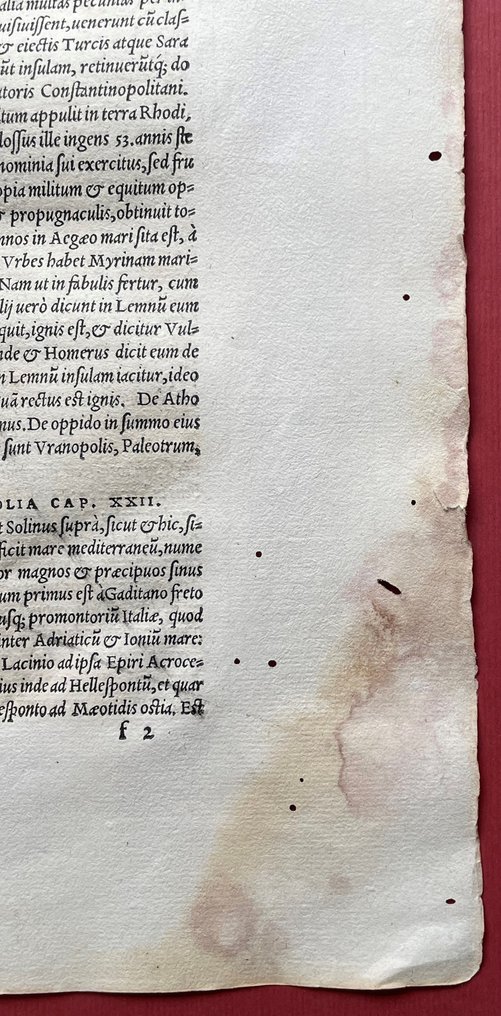 alia multas pecunias
uiſiuiſſent, uenerunt cũ claſ=
& eiectis Turcis atque Sara
ũt inſulam, retinuerũtq́; do
utoris Conſtantinopolitani.
tum appulit in terra Rhodi,
loſſus ille ingens 53. annis ſte
nominia ſui exercitus, ſed fru
opia militum & equitum op=
& propugnaculis, obtinuit to=
mnos in Aegæo mari ſita eſt, à
Vrbes habet Myrinam mari=
Nam ut in fabulis fertur, cum
lij uerò dicunt in Lemnũ eum
quit, ignis eſt, & dicitur Vul=
nde & Homerus dicit eum de
n Lemnũ inſulam iacitur, ideo
uã rectus est ignis. De Atho
nus. De oppido in ſummo eius
ſunt Vranopolis, Paleotrum,
OLIA CAP. XXII.
t Solinus ſuprà, ſicut & hic, ſi=
ficit mare mediterraneũ, nume
or magnos & præcipuos ſinus
um primus eſt à Gaditano freto
uſq; promontoriũ Italiæ, quod
inter Adriaticũ & Ioniũ mare:
Lacinio ad ipſa Epiri Acroce=
ius inde ad Helleſpontũ, et quar
eſponto ad Mæotidis oſtia. Est
f 2